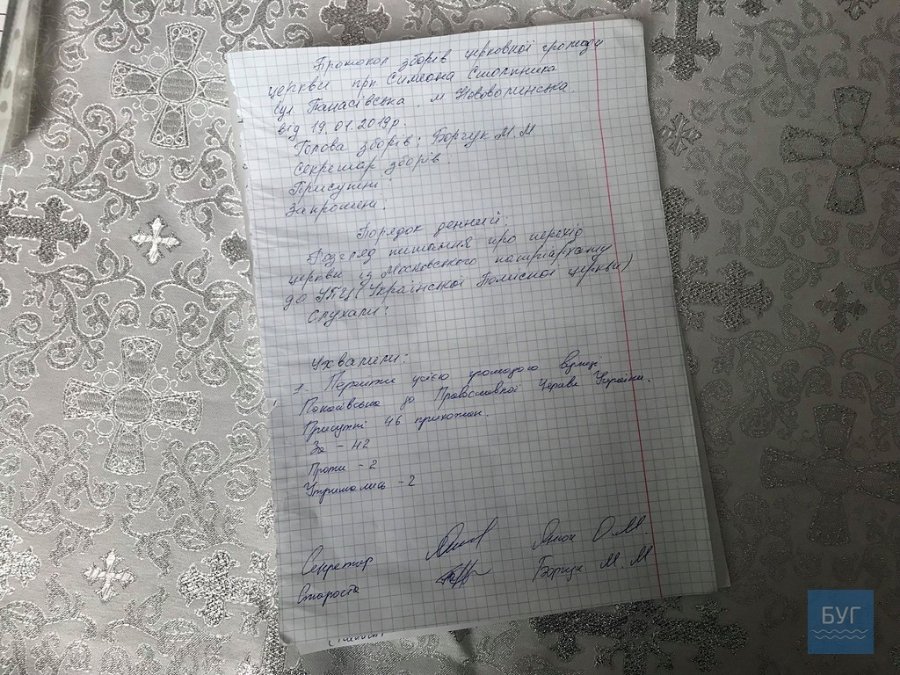 Протокол зборів церковної громади
церкви прп Симеона Столпника
вул Танасівська, м Нововолинська
від 19.01.2019р.
Голова зборів: Борчук М.М
Секретар зборів.
Присутні
Запрошені.
Порядок денний.
Розгляд питання про перехід
церкви із Московського патріархату
до УПЦ (Української Помісної церкви)
Слухали:
Ухвалили:
1. Перейти усією громадою вулиці
до Православної Церкви України.
Присутні 46 прихожан.
За - 42
Проти - 2
Утримались - 2
Секретар О.М.
Староста Борчук М.М
БУГ